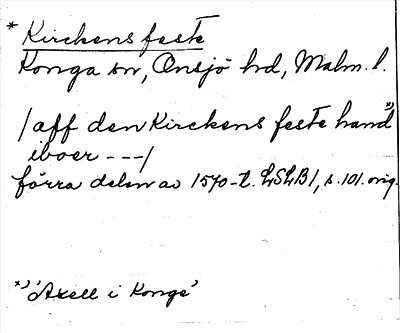 * Kirckens feste
Konga sn, Onsjö hd, Malm. l.
/aff den Kirckens feste hand *)
iboer ---/
förra delen av 1570-t. LSLB1, s. 101. orig.
*) 'Axell i Konge'